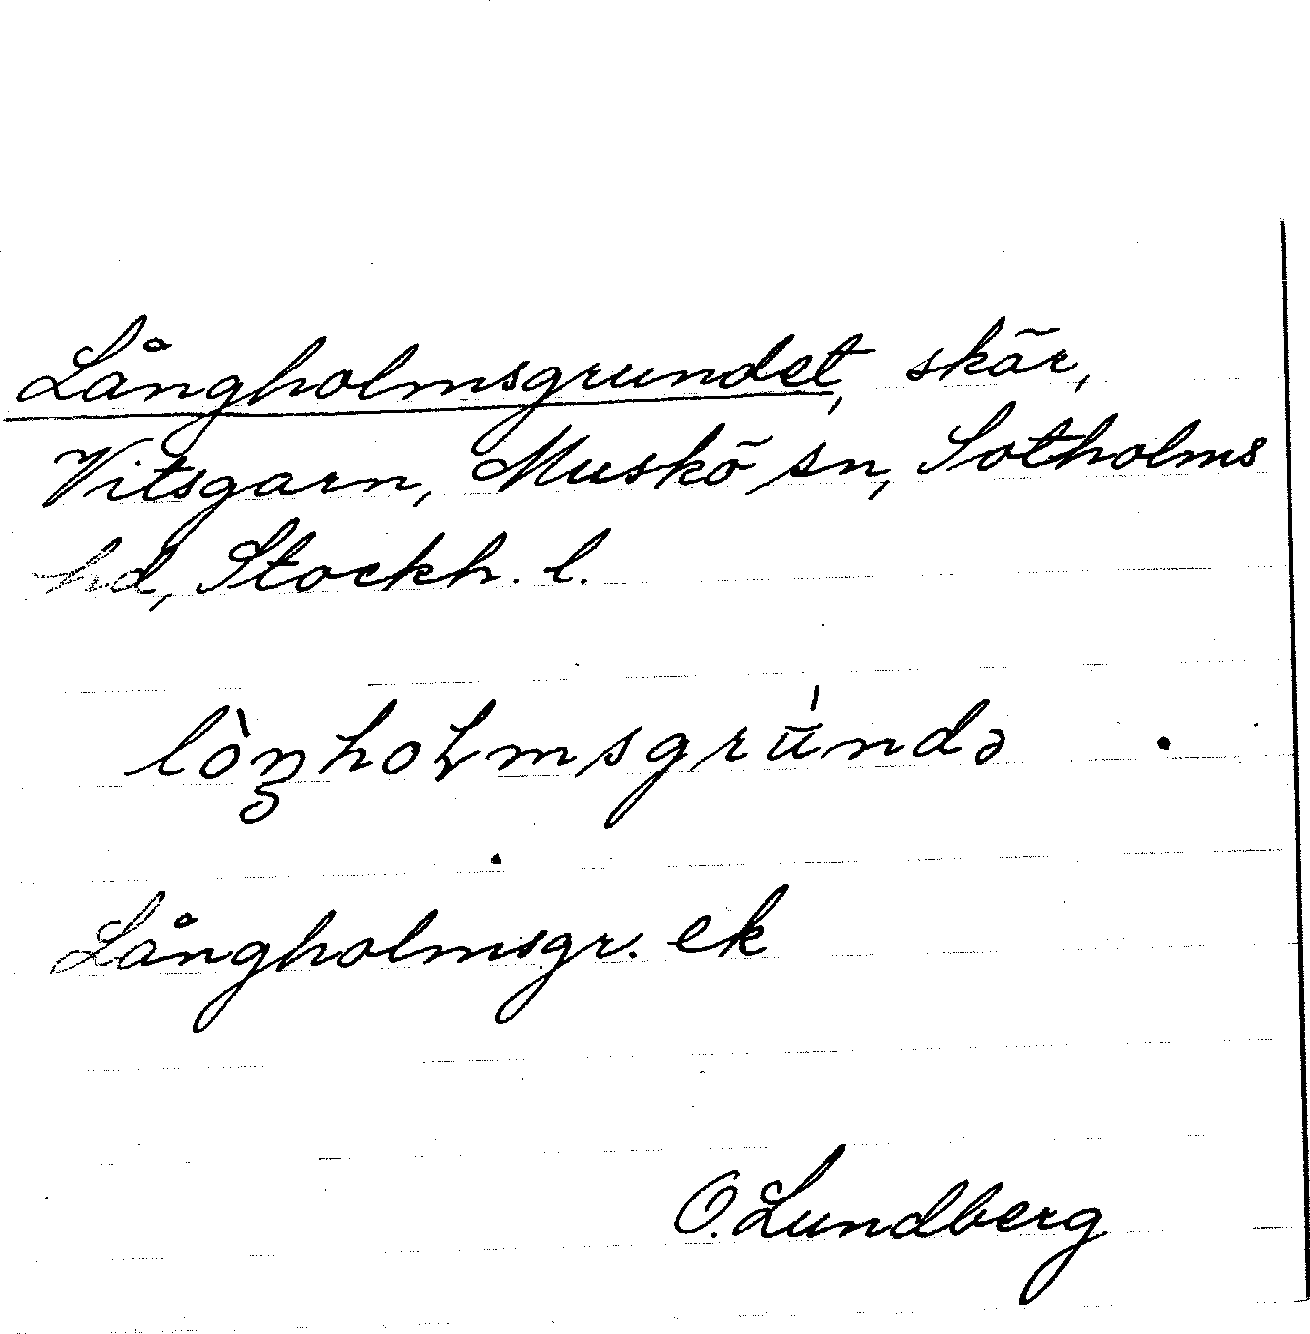 Långholmsgrundet, skär,
Vitsgarn, Muskö sn, Sotholms
hd, Stockh. l.
lòŋhoɬmsgrú̄ndə
Långholmsgr. ek
O. Lundberg